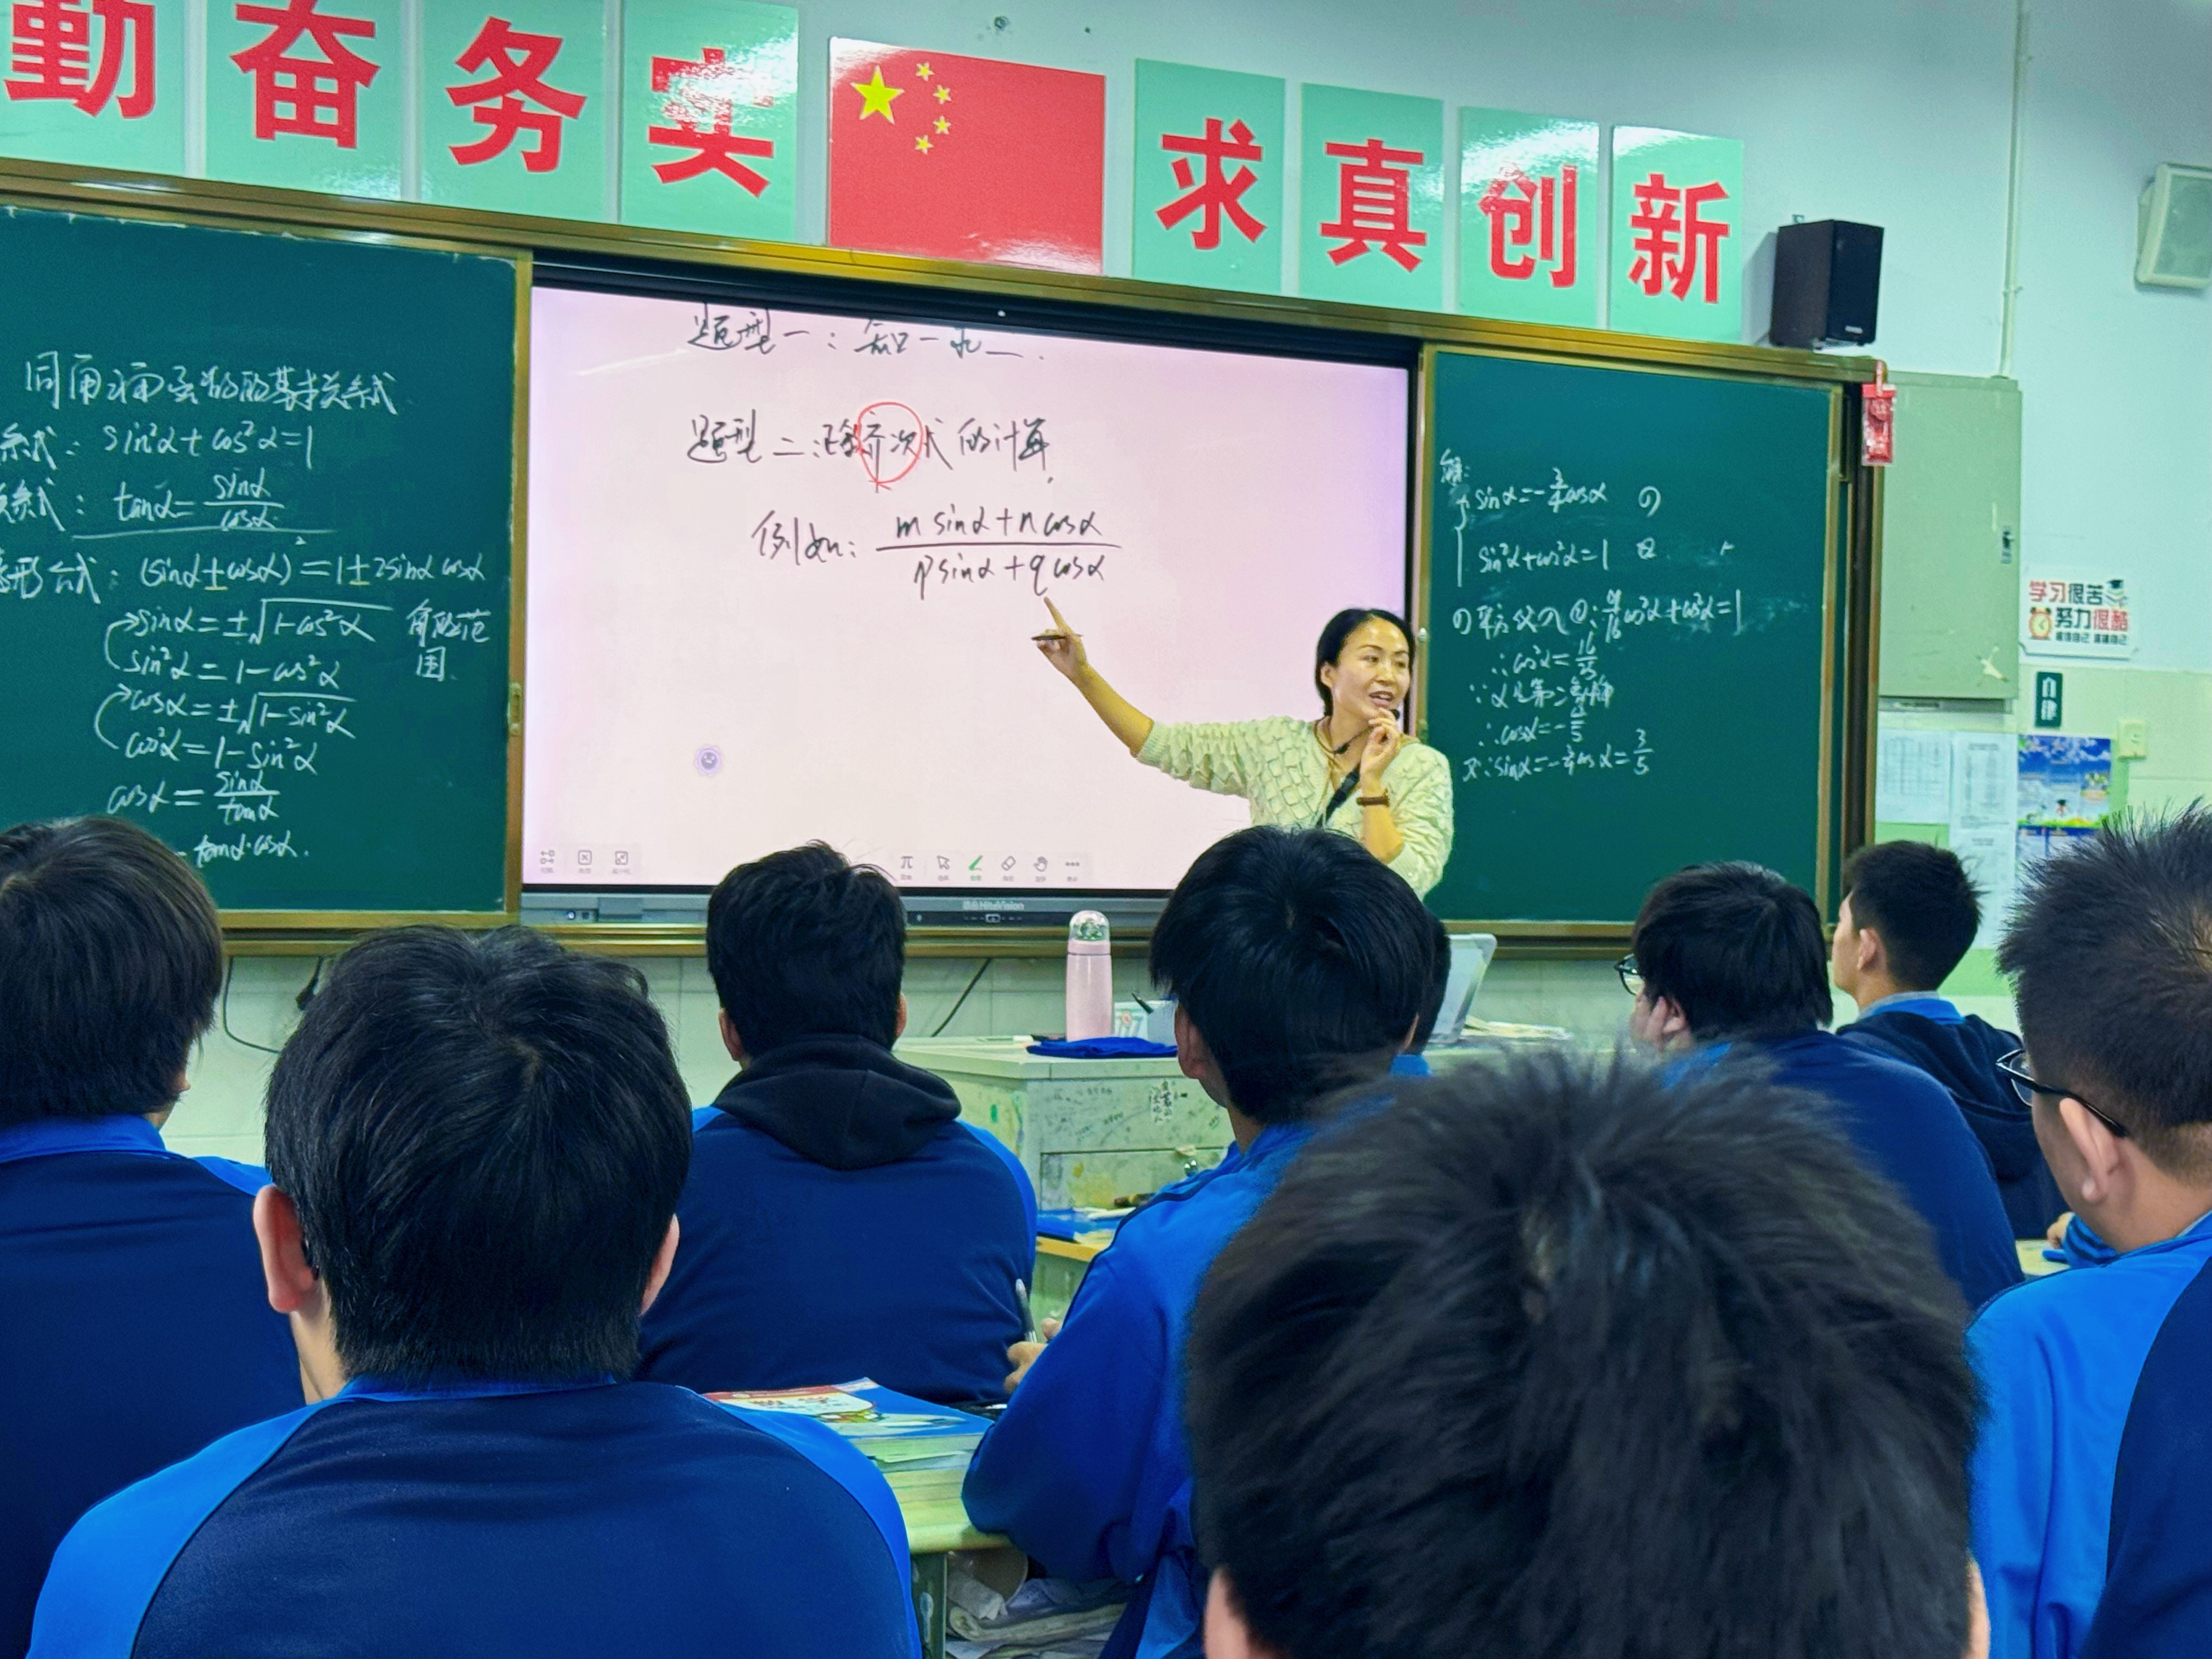 勤 奋 务 实 求 真 创 新
同角三角函数的基本关系式
系式: sin²α+cos²α=1
系式: tanα=sinα/cosα
变形公式: (sinα±cosα)²=1±2sinα cosα
sinα=±√(1-cos²α) 角的范围
sin²α=1-cos²α
cosα=±√(1-sin²α)
cos²α=1-sin²α
cosα=sinα/tanα
tanα·cosα.
题型一:知一求二.
题型二: 齐次式的计算.
例如: (m sinα+n cosα)/(p sinα+q cosα)
HiteVision
解:
sinα=-3/4cosα ①
sin²α+cos²α=1 ②
①平方代入②: 9/16cos²α+cos²α=1
∴cos²α=16/25
∵α是第二象限
∴cosα=-4/5
又∵sinα=-3/4cosα=3/5
学习很苦
努力很酷
自律
数学